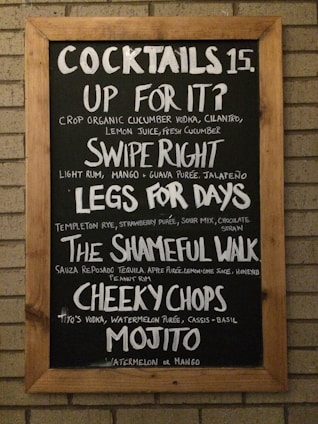 COCKTAILS 15.
UP FOR IT?
CROP ORGANIC CUCUMBER VODKA, CILANTRO,
LEMON JUICE, FRESH CUCUMBER
SWIPE RIGHT
LIGHT RUM, MANGO + GUAVA PURÉE, JALAPEÑO
LEGS FOR DAYS
TEMPLETON RYE, STRAWBERRY PURÉE, SOUR MIX, CHOCOLATE
STRAW
THE SHAMEFUL WALK
SAUZA REPOSADO TEQUILA, APPLE PURÉE, LEMON + LIME JUICE, HONEYED
PEANUT RIM
CHEEKY CHOPS
TITO'S VODKA, WATERMELON PURÉE, CASSIS + BASIL
MOJITO
WATERMELON OR MANGO